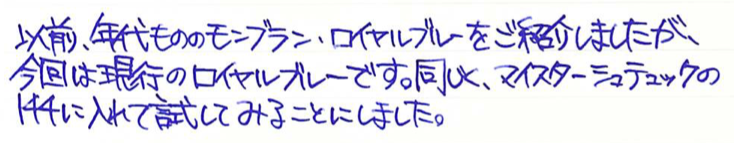 以前、年代もののモンブラン・ロイヤルブルーをご紹介しましたが、
今回は現行のロイヤルブルーです。同じく、マイスターシュテュックの
144に入れて試してみることにしました。